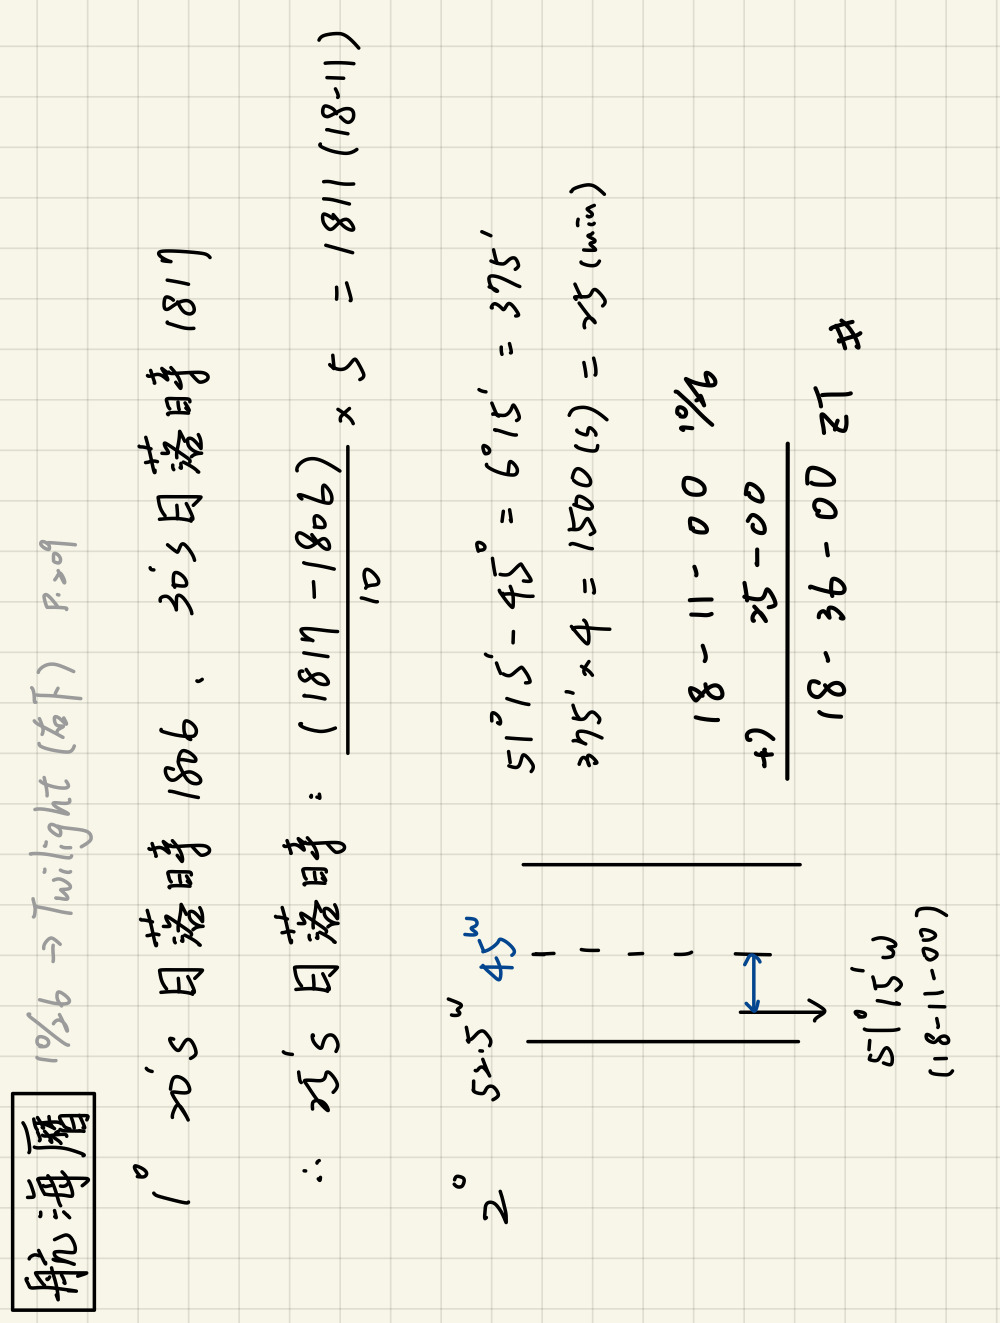 航海曆 10/26 → Twilight (右下) p.209
1° 20'S 日落時 1806 、 30'S 日落時 1817
∴ 25'S 日落時 : (1817-1806)/10 × 5 = 1811 (18-11)
2° 52.5W 45W
51°15'W
(18-11-00)
51°15' - 45° = 6°15' = 375'
375' × 4 = 1500(s) = 25 (min)
18-11-00 10/26
+) 25-00
18-36-00 ZT #